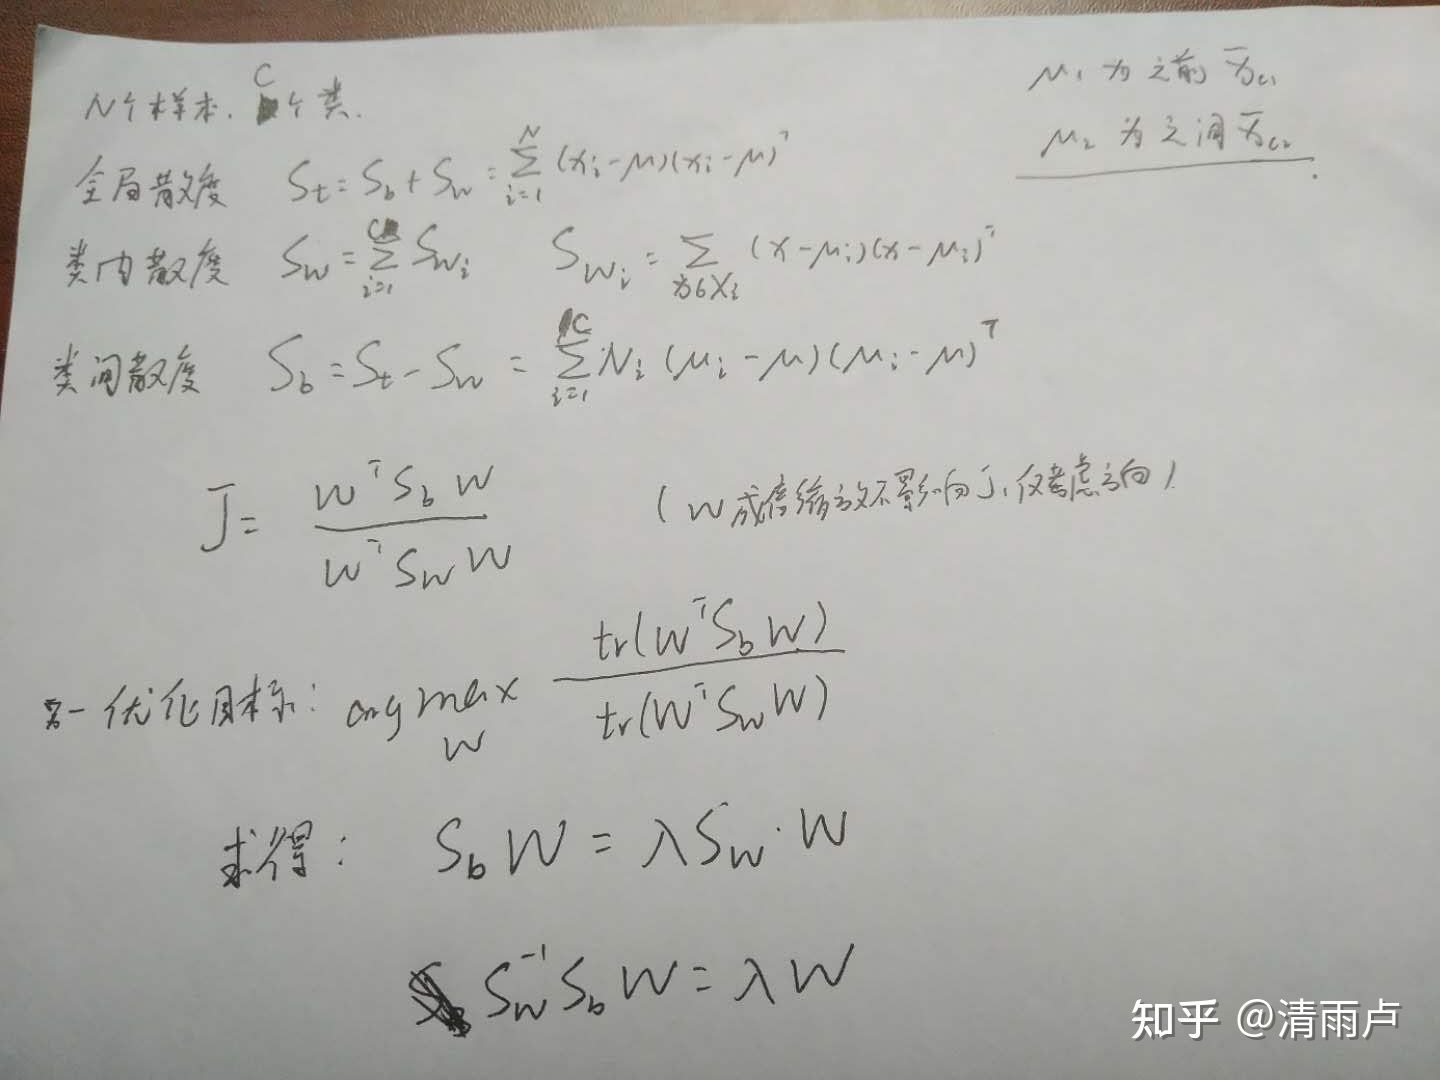 N个样本. C个类.
μ₁ 为之前 x̄c₁
μ₂ 为之间 x̄c₂.
全局散度 St = Sb + Sw = ∑_{i=1}^{N} (xi - μ)(xi - μ)ᵀ
类内散度 Sw = ∑_{i=1}^{C} Swi Swi = ∑_{x∈Xi} (x - μi)(x - μi)ᵀ
类间散度 Sb = St - Sw = ∑_{i=1}^{C} Ni (μi - μ)(μi - μ)ᵀ
J = wᵀSbw / wᵀSww (w成倍缩放不影响J, 仅考虑方向)
一优化目标: arg max_W tr(WᵀSbW) / tr(WᵀSwW)
求得: SbW = λSw·W
Sw⁻¹SbW = λW
知乎 @清雨卢